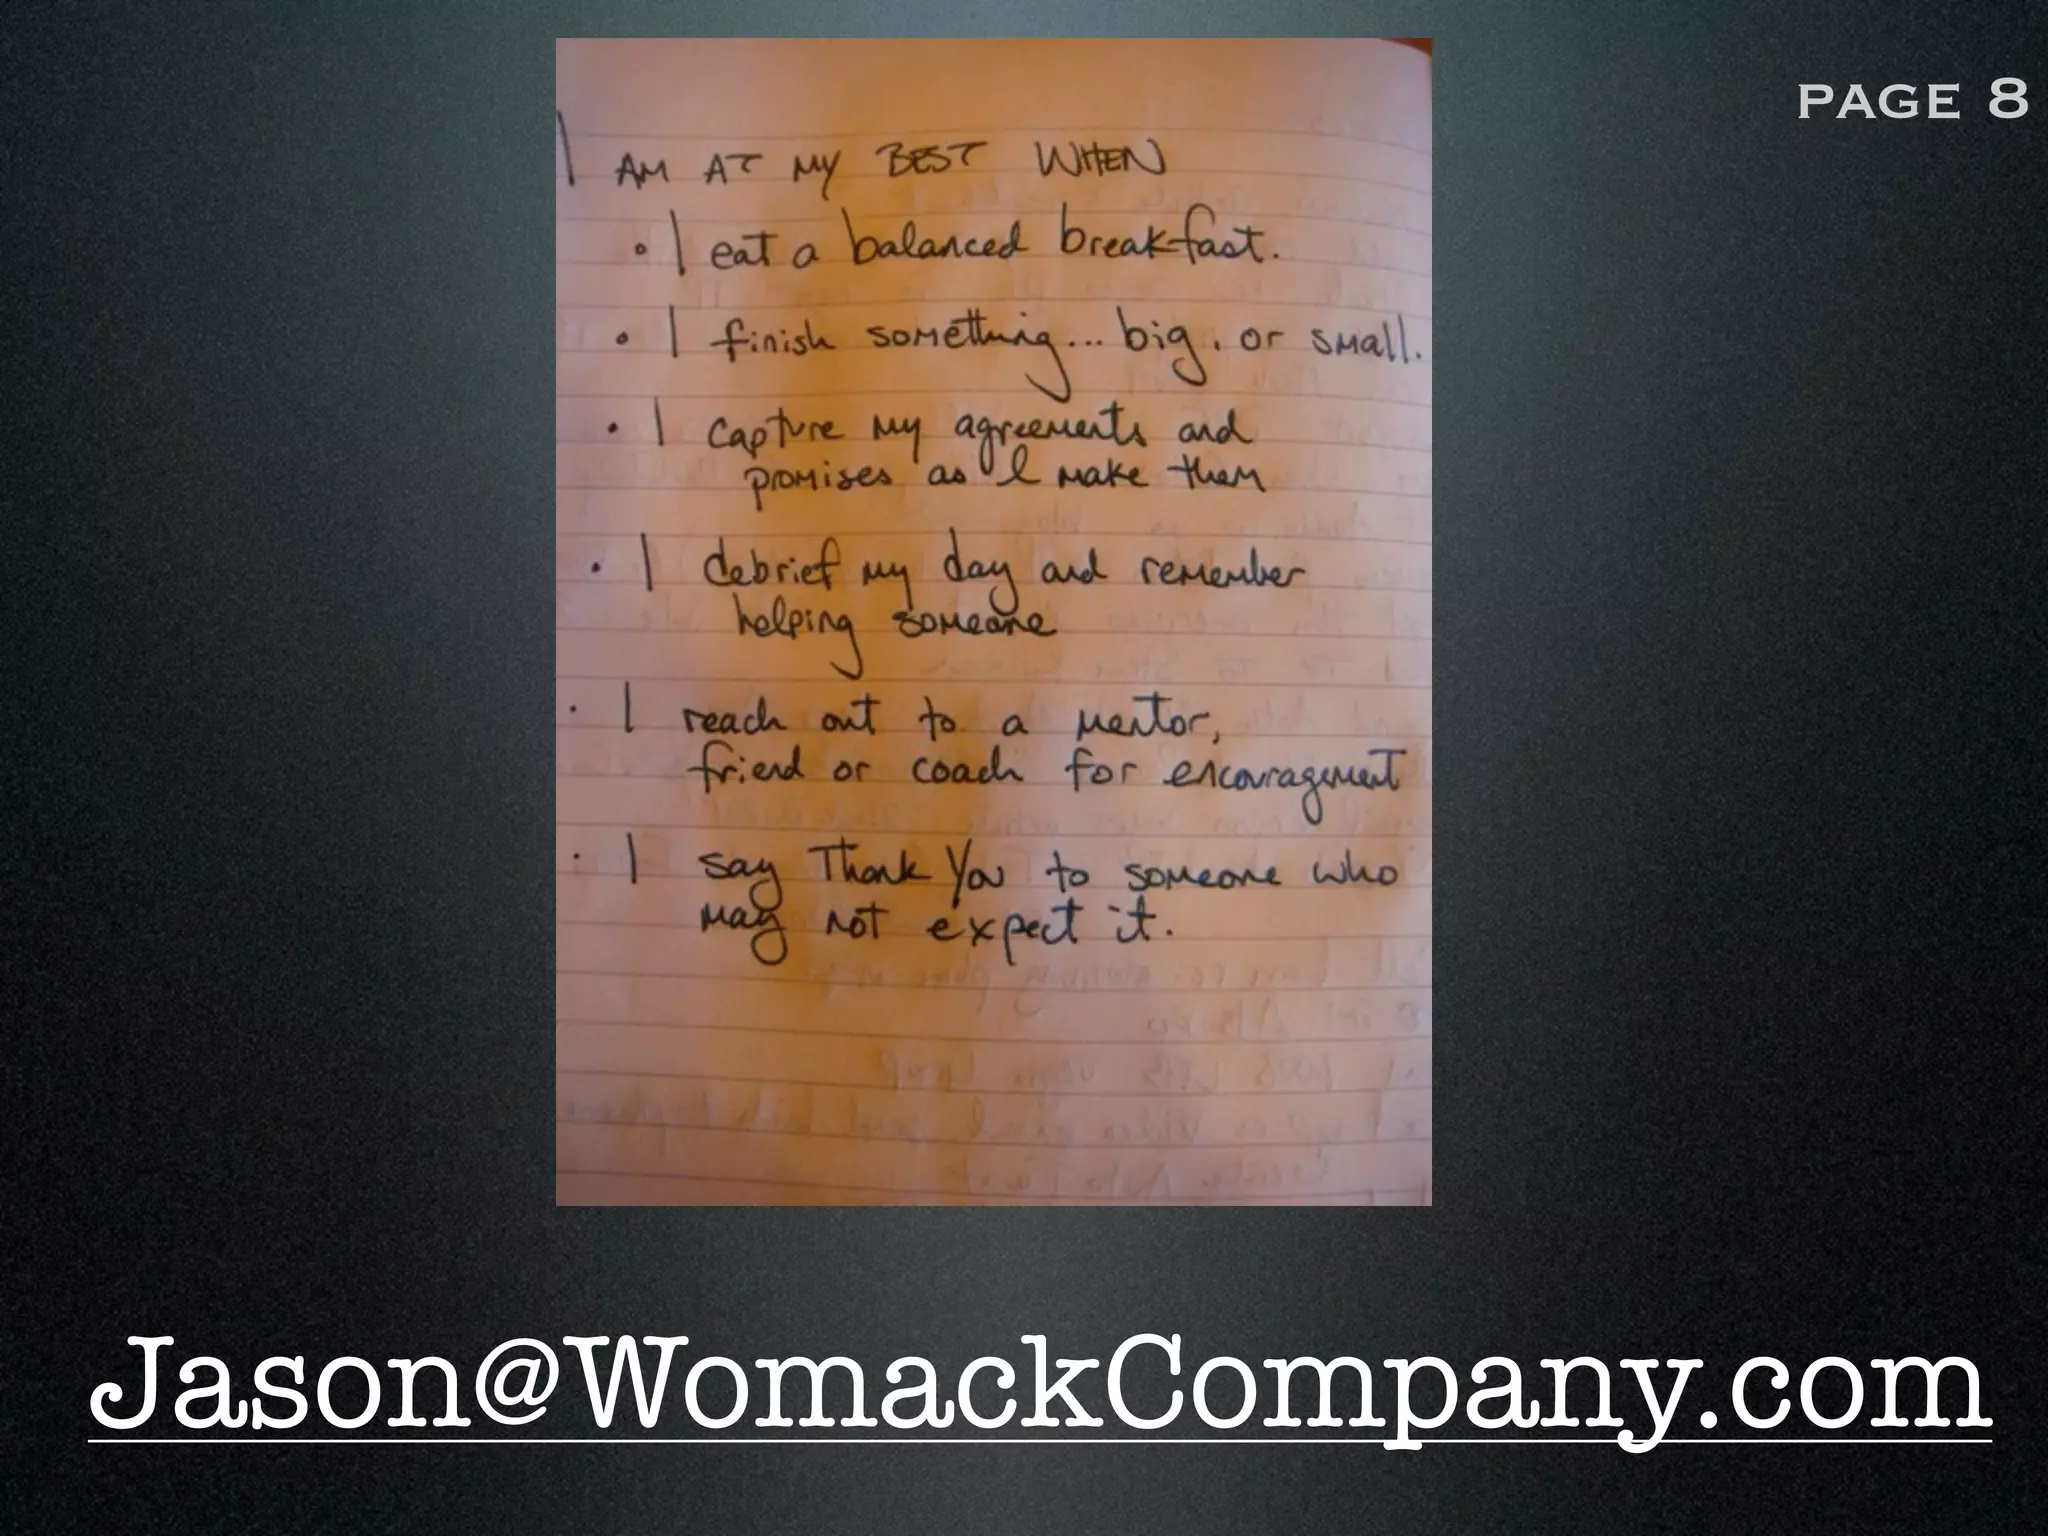 PAGE 8
I AM AT MY BEST WHEN
• I eat a balanced breakfast.
• I finish something... big, or small.
• I capture my agreements and
promises as I make them
• I debrief my day and remember
helping someone
• I reach out to a mentor,
friend or coach for encouragement
• I say Thank You to someone who
may not expect it.
Jason@WomackCompany.com